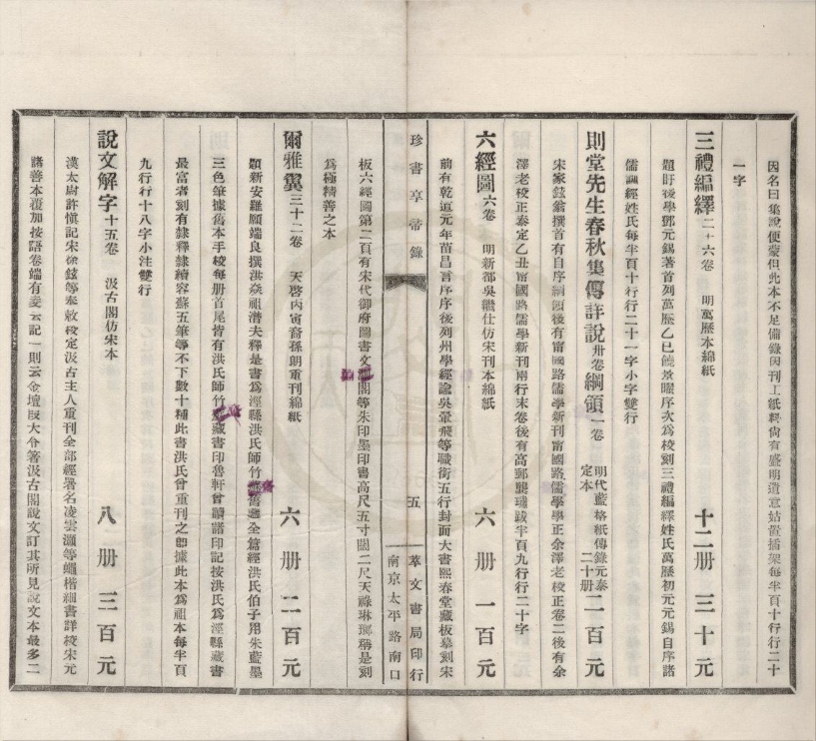 因名曰集說便蒙但此本不足備錄因刊工紙料尙有盛明遺意姑置插架每半頁十行行二十
一字
三禮編繹二十六卷　明萬歷本綿紙　十二册　三十元
題盱後學鄧元錫著首列萬歷乙巳饒景曜序次爲校刻三禮編繹姓氏萬歷初元元錫自序諸
儒經姓氏每半頁十行行二十一字小字雙行
則堂先生春秋集傳詳說卅卷綱領一卷　明代藍格紙傳錄元泰定本　二十册　二百元
宋家鉉翁撰首有自序綱領後有甯國路儒學新刊甯國路儒學學正余澤老校正卷二後有余
澤老校正泰定乙丑甯國路儒學新刊兩行末卷後有高郵龔璛跋半頁九行行二十字
六經圖六卷　明新都吳繼仕仿宋刊本綿紙　六册　一百元
前有乾道元年苗昌言序序後列州學經諭吳翬飛等職銜五行封面大書熙春堂藏板摹刻宋
珍書享帚錄　五　萃文書局印行　南京太平路南口
板六經圖第二頁有宋代御府圖書文閣等朱印墨印書高尺五寸闊二尺天祿琳瑯稱是刻
爲極精善之本
爾雅翼三十二卷　天啓丙寅裔孫朗重刊綿紙　六册　二百元
題新安羅願端良撰洪焱祖潛夫釋是書爲涇縣洪氏師竹舊遞全篇經洪氏伯子用朱藍墨
三色筆據舊本手校每册首尾皆有洪氏師竹藏書印魯軒曾讀諸印記按洪氏爲涇縣藏書
最富者刻有隸釋隸續容蘇五筆等不下數十種此書洪氏曾重刊之卽據此本爲祖本每半頁
九行行十八字小注雙行
說文解字十五卷　汲古閣仿宋本　八册　三百元
漢太尉許愼記宋徐鉉等奉敕校定汲古主人重刊全部經署名淩雲灝等蠅楷細書詳校宋元
諸善本覆加按語卷端有云記一則云金壇段大令箸汲古閣說文訂其所見說文本最多二